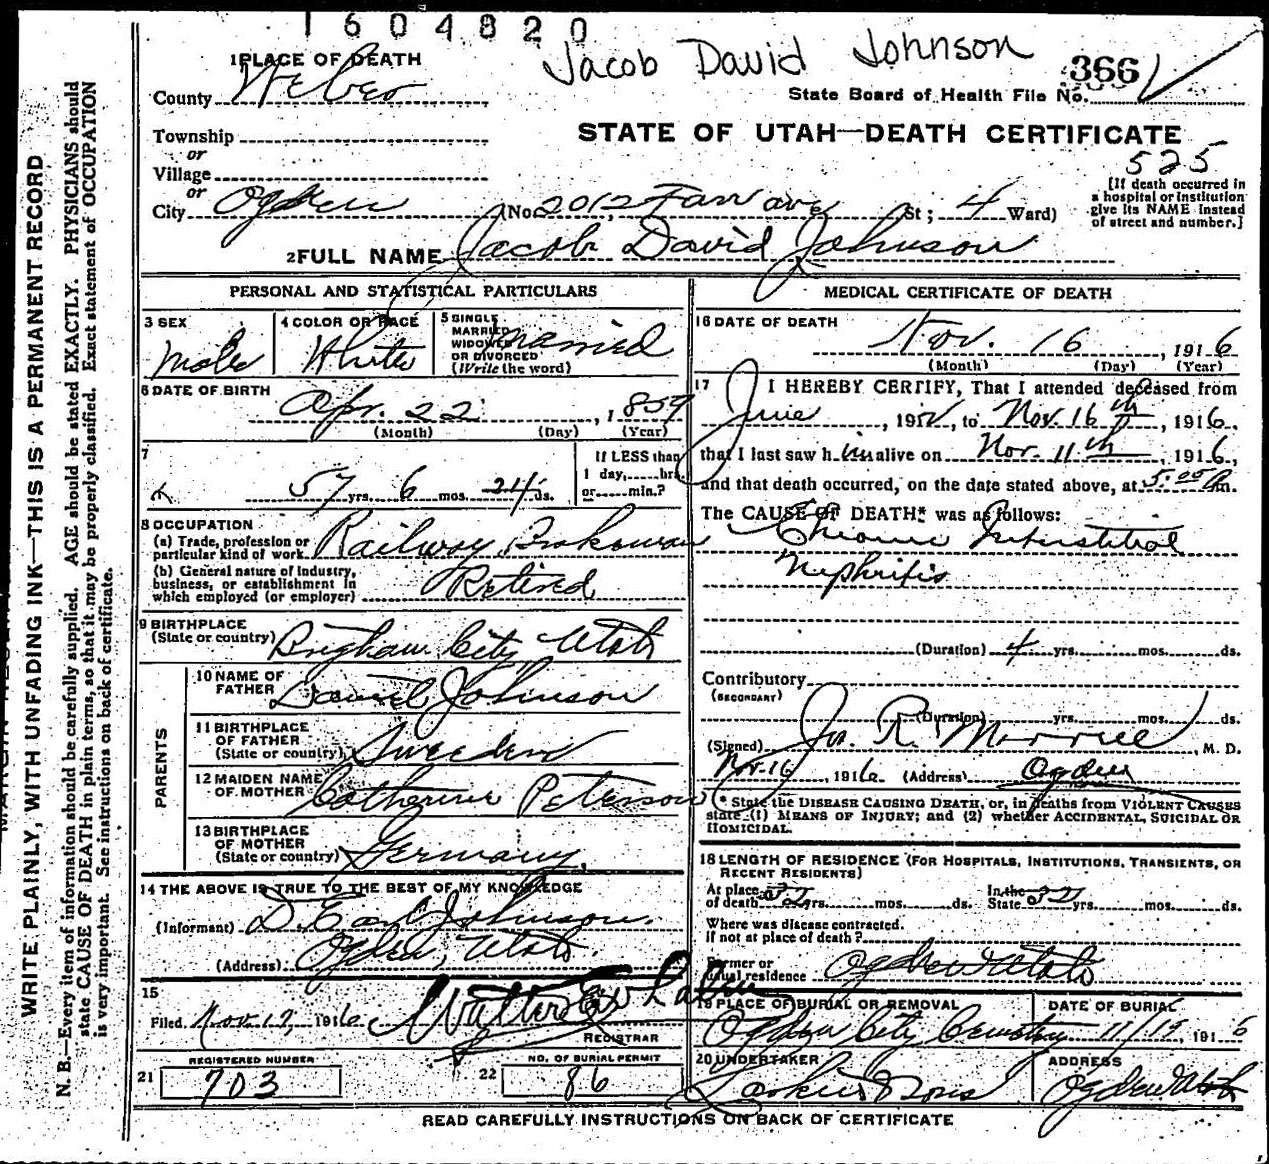 1604820
Jacob David Johnson
366
State Board of Health File No.
1 PLACE OF DEATH
County Weber
STATE OF UTAH—DEATH CERTIFICATE
525
Township
or
Village
or
City Ogden (No. 2012 Farr ave St; 4 Ward)
[If death occurred in a hospital or institution give its NAME instead of street and number.]
2 FULL NAME Jacob David Johnson
PERSONAL AND STATISTICAL PARTICULARS
3 SEX
Male
4 COLOR OR RACE
White
5 SINGLE
MARRIED
WIDOWED
OR DIVORCED
(Write the word)
married
6 DATE OF BIRTH
Apr. 22, 1859
(Month) (Day) (Year)
7
57 yrs. 6 mos. 24 ds.
If LESS than
1 day, hrs.
or min.?
8 OCCUPATION
(a) Trade, profession or
particular kind of work Railway Brakeman
(b) General nature of industry,
business, or establishment in
which employed (or employer) Retired
9 BIRTHPLACE
(State or country) Brigham City, Utah
PARENTS
10 NAME OF
FATHER Johnson
11 BIRTHPLACE
OF FATHER
(State or country) Sweeden
12 MAIDEN NAME
OF MOTHER Catherine Peterson
13 BIRTHPLACE
OF MOTHER
(State or country) Germany.
14 THE ABOVE IS TRUE TO THE BEST OF MY KNOWLEDGE
(Informant) D. Earl Johnson.
(Address) Ogden, Utah.
15
Filed Nov. 17, 1916 Walter
REGISTRAR
REGISTERED NUMBER
21 703
NO. OF BURIAL PERMIT
22 86
MEDICAL CERTIFICATE OF DEATH
16 DATE OF DEATH
Nov. 16, 1916
(Month) (Day) (Year)
17 I HEREBY CERTIFY, That I attended deceased from
June, 191 , to Nov. 16th, 1916,
that I last saw him alive on Nov. 11th, 1916,
and that death occurred, on the date stated above, at 5:00 a m.
The CAUSE OF DEATH* was as follows:
Chronic Interstitial
Nephritis
(Duration) 4 yrs. mos. ds.
Contributory
(SECONDARY)
(Duration) yrs. mos. ds.
(Signed) Jos. R. Morrell, M. D.
Nov. 16, 1916 (Address) Ogden
* State the DISEASE CAUSING DEATH, or, in deaths from VIOLENT CAUSES
state (1) MEANS OF INJURY; and (2) whether ACCIDENTAL, SUICIDAL OR
HOMICIDAL.
18 LENGTH OF RESIDENCE (FOR HOSPITALS, INSTITUTIONS, TRANSIENTS, OR
RECENT RESIDENTS)
At place
of death yrs. mos. ds.
In the
State yrs. mos. ds.
Where was disease contracted.
If not at place of death?
Former or
usual residence Ogden Utah
19 PLACE OF BURIAL OR REMOVAL
Ogden City Cemetery
DATE OF BURIAL
11/19, 1916
20 UNDERTAKER
Larkin & Sons
ADDRESS
Ogden Utah
READ CAREFULLY INSTRUCTIONS ON BACK OF CERTIFICATE
WRITE PLAINLY, WITH UNFADING INK—THIS IS A PERMANENT RECORD
N. B.—Every item of information should be carefully supplied. AGE should be stated EXACTLY. PHYSICIANS should
state CAUSE OF DEATH in plain terms, so that it may be properly classified. Exact statement of OCCUPATION
is very important. See instructions on back of certificate.